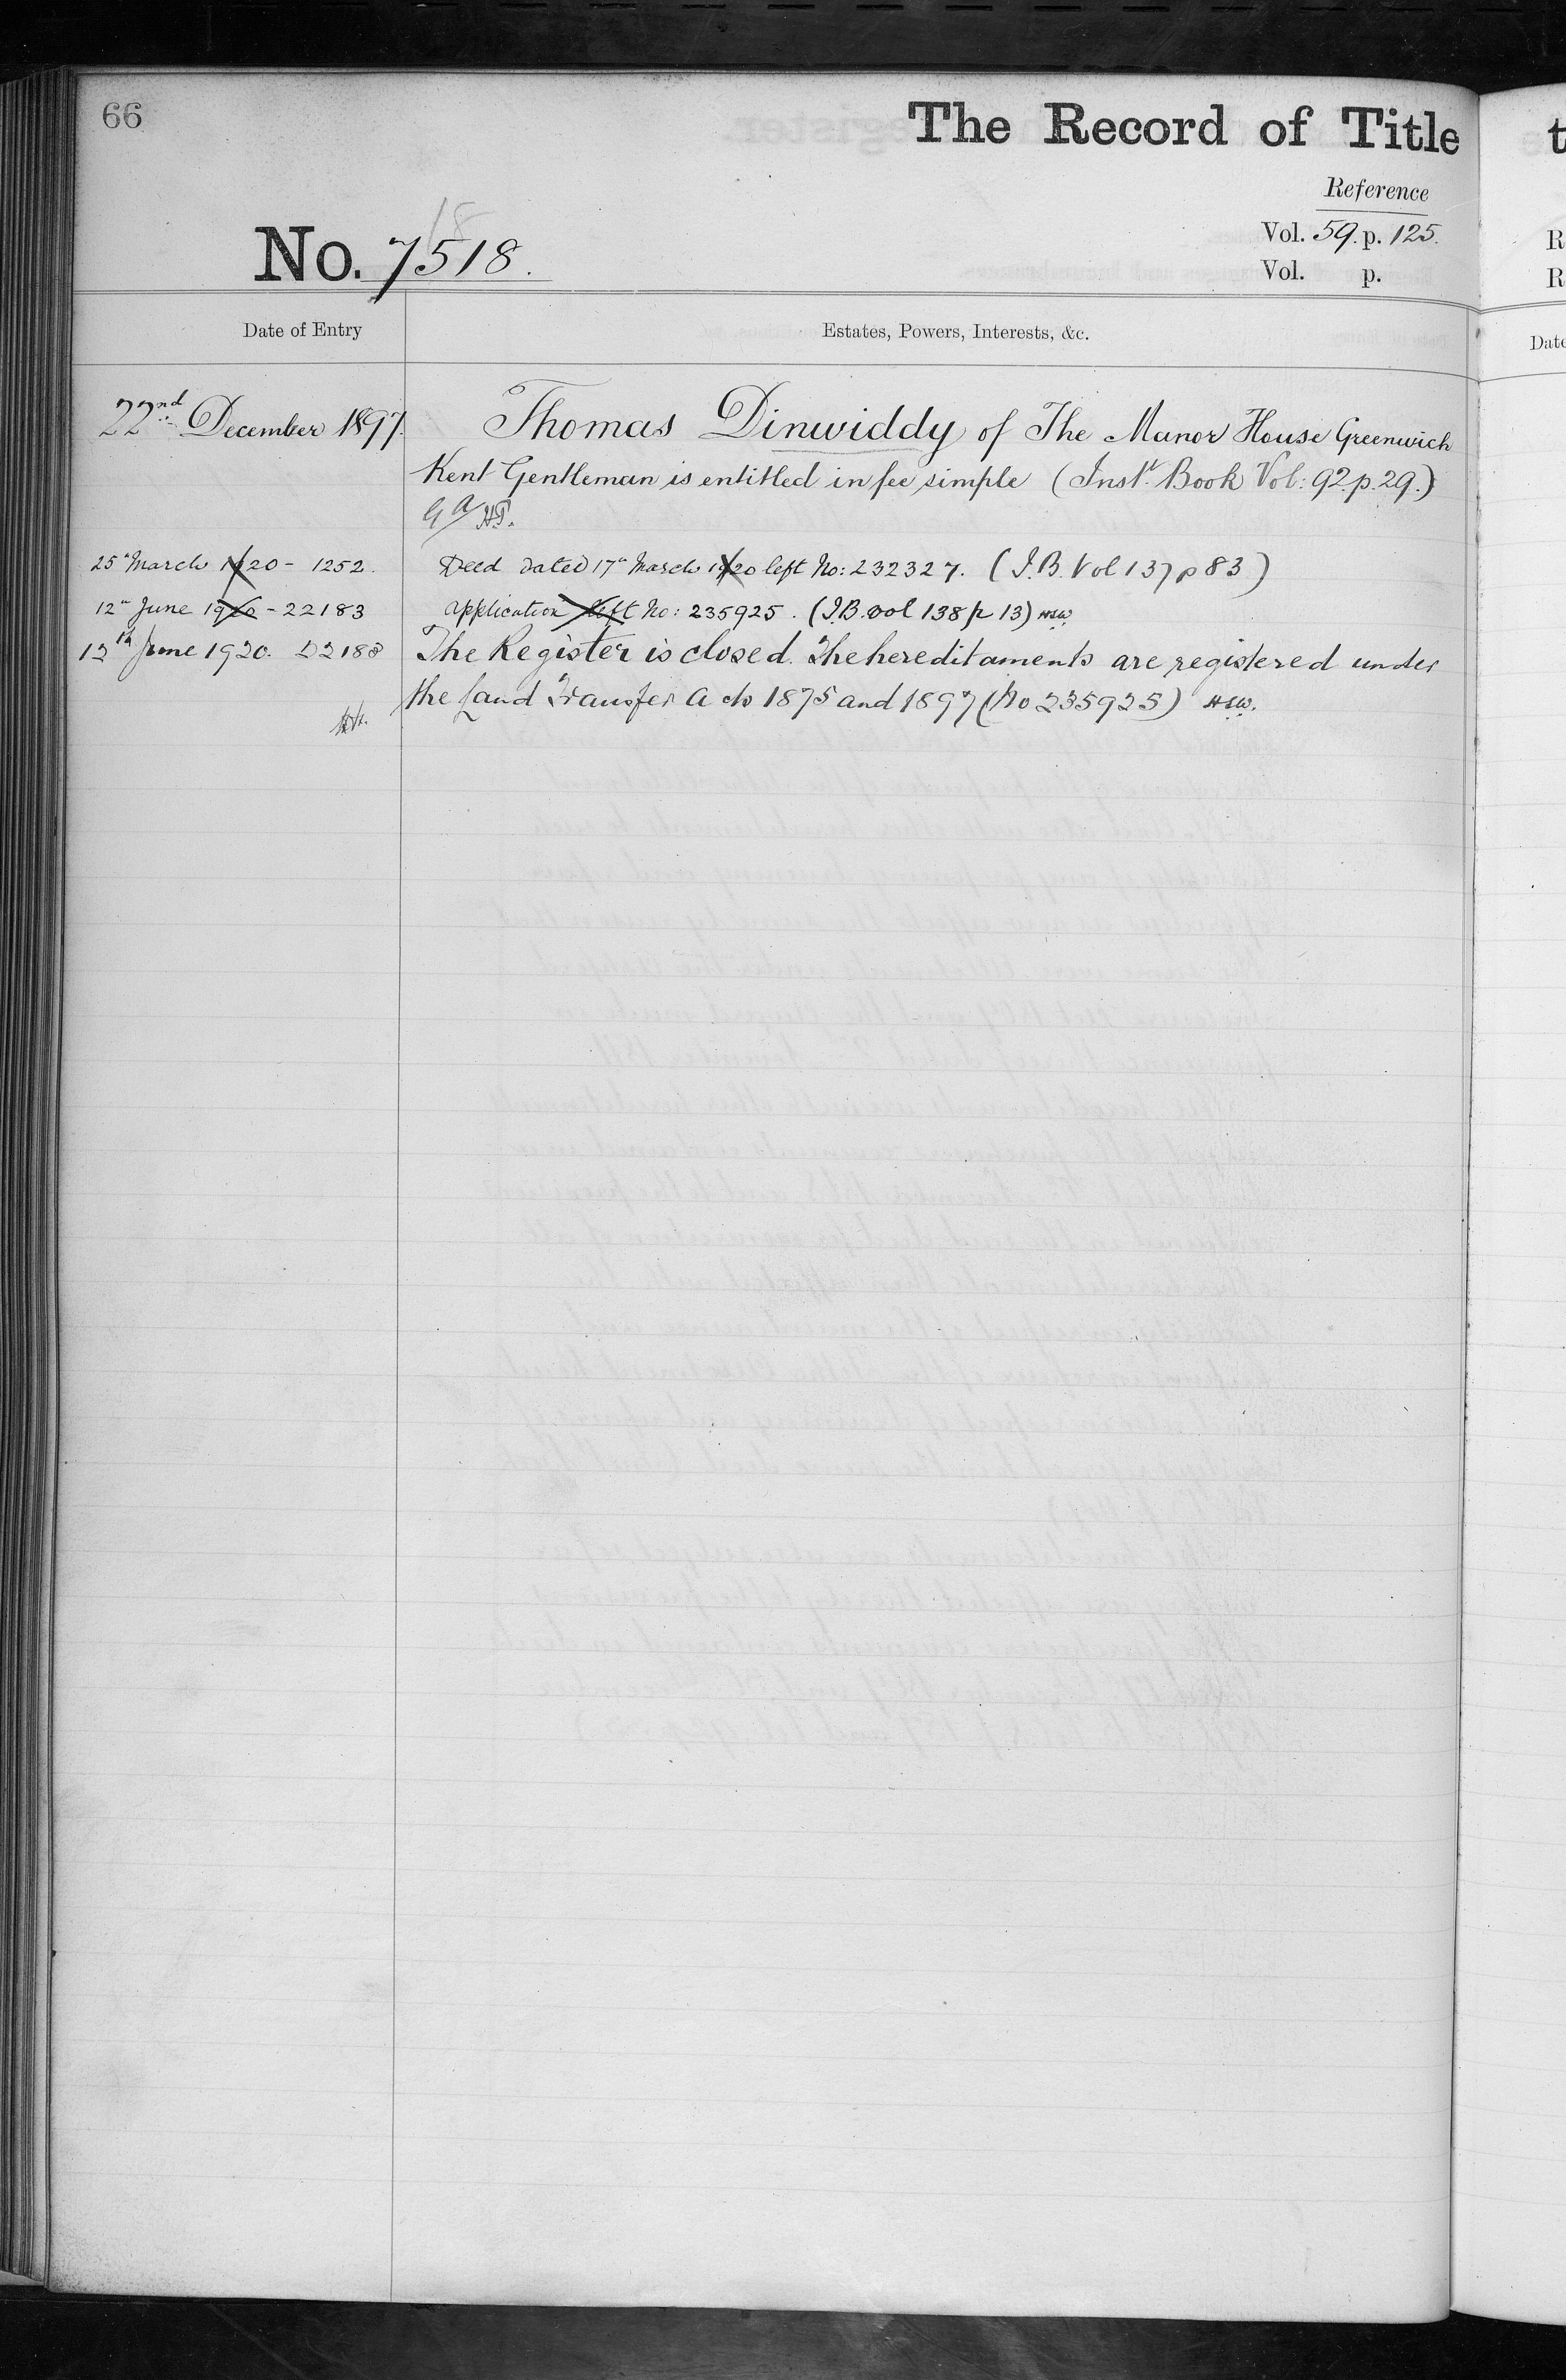 66
The Record of Title
Reference
Vol. 59. p. 125.
No. 7518.
18
Vol. p.
Date of Entry
Estates, Powers, Interests, &c.
22nd December 1897.
Thomas Dinwiddy of The Manor House Greenwich
Kent Gentleman is entitled in fee simple (Inst. Book Vol: 92. p. 29.)
25th March 1920 - 1252.
Deed dated 17th March 1920 left No: 232327. (I.B. Vol 137 p 83)
12th June 1920 - 22183
Application left No: 235925. (I.B. vol 138 p 13) HSW.
12th June 1920. D2188
The Register is closed. The hereditaments are registered under
the Land Transfer Acts 1875 and 1897 (No 235925) HSW.
t
R
R
Date